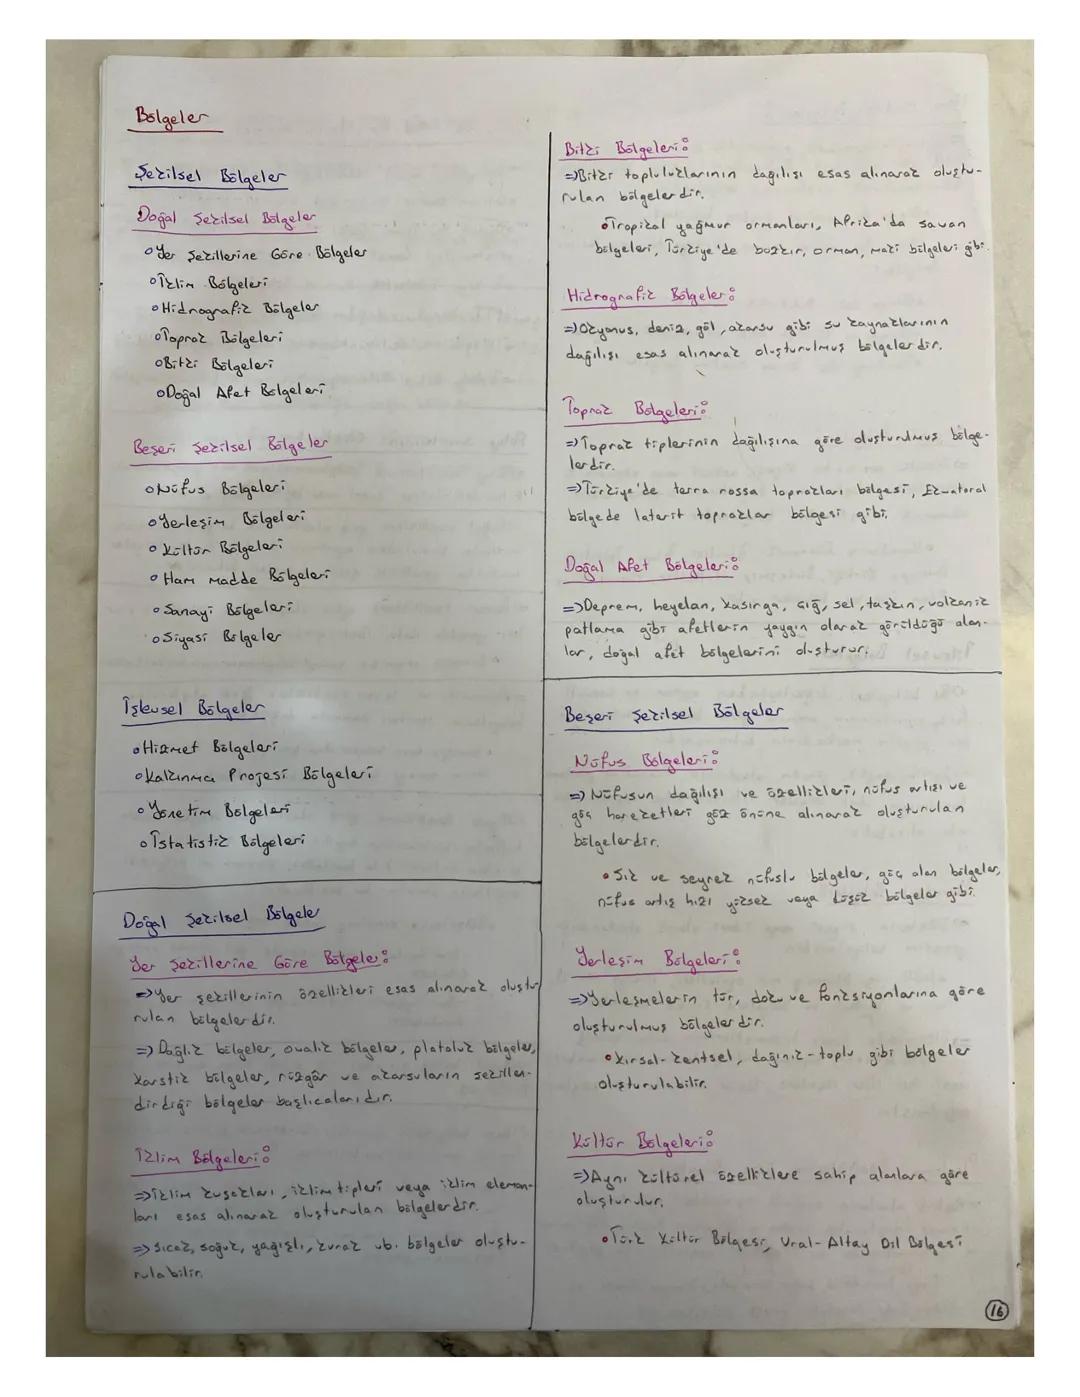 Bölgeler
Şekilsel Bölgeler
Doğal Şekilsel Bölgeler
Yer Şekillerine Göre Bölgeler
İklim Bölgeleri
Hidrografik Bölgeler
Toprak Bölgeleri
Bitki Bölgeleri
Doğal Afet Bölgeleri
Beşeri Şekilsel Bölgeler
Nüfus Bölgeleri
Yerleşim Bölgeleri
Kültür Bölgeleri
Ham Madde Bölgeleri
Sanayi Bölgeleri
Siyasi Bölgeler
İşlevsel Bölgeler
Hizmet Bölgeleri
Kalkınma Projesi Bölgeleri
Yönetim Bölgeleri
İstatistik Bölgeleri
Doğal Şekilsel Bölgeler
Yer Şekillerine Göre Bölgeler:
=> Yer şekillerinin özellikleri esas alınarak oluştu
rulan bölgelerdir.
=> Dağlık bölgeler, ovalık bölgeler, platoluk bölgeler,
karstik bölgeler, rüzgâr ve akarsuların şekillen-
dirdiği bölgeler başlıcalarıdır.
İklim Bölgeleri:
=> İklim kuşakları, iklim tipleri veya iklim eleman-
ları esas alınarak oluşturulan bölgelerdir.
=> Sıcak, soğuk, yağışlı, kurak vb. bölgeler oluştu-
rulabilir.
Bitki Bölgeleri:
=> Bitki topluluklarının dağılışı esas alınarak oluştu-
rulan bölgelerdir.
Tropikal yağmur ormanları, Afrika'da savan
bölgeleri, Türkiye'de bozkır, orman, maki bölgeleri gibi.
Hidrografik Bölgeler:
=> Okyanus, deniz, göl, akarsu gibi su kaynaklarının
dağılışı esas alınarak oluşturulmuş bölgelerdir.
Toprak Bölgeleri:
=> Toprak tiplerinin dağılışına göre oluşturulmuş bölge-
lerdir.
=> Türkiye'de terra rossa toprakları bölgesi, Ekvatoral
bölgede laterit topraklar bölgesi gibi.
Doğal Afet Bölgeleri:
=> Deprem, heyelan, kasırga, çığ, sel, taşkın, volkanik
patlama gibi afetlerin yaygın olarak görüldüğü alan-
lar, doğal afet bölgelerini oluşturur.
Beşeri Şekilsel Bölgeler
Nüfus Bölgeleri:
=> Nüfusun dağılışı ve özellikleri, nüfus artışı ve
göç hareketleri göz önüne alınarak oluşturulan
bölgelerdir.
Sık ve seyrek nüfuslu bölgeler, göç alan bölgeler,
nüfus artış hızı yüksek veya düşük bölgeler gibi.
Yerleşim Bölgeleri:
=> Yerleşmelerin tür, doku ve fonksiyonlarına göre
oluşturulmuş bölgelerdir.
Kırsal-kentsel, dağınık-toplu gibi bölgeler
oluşturulabilir.
Kültür Bölgeleri:
=> Aynı kültürel özelliklere sahip alanlara göre
oluşturulur.
Türk Kültür Bölgesi, Ural-Altay Dil Bölgesi
16